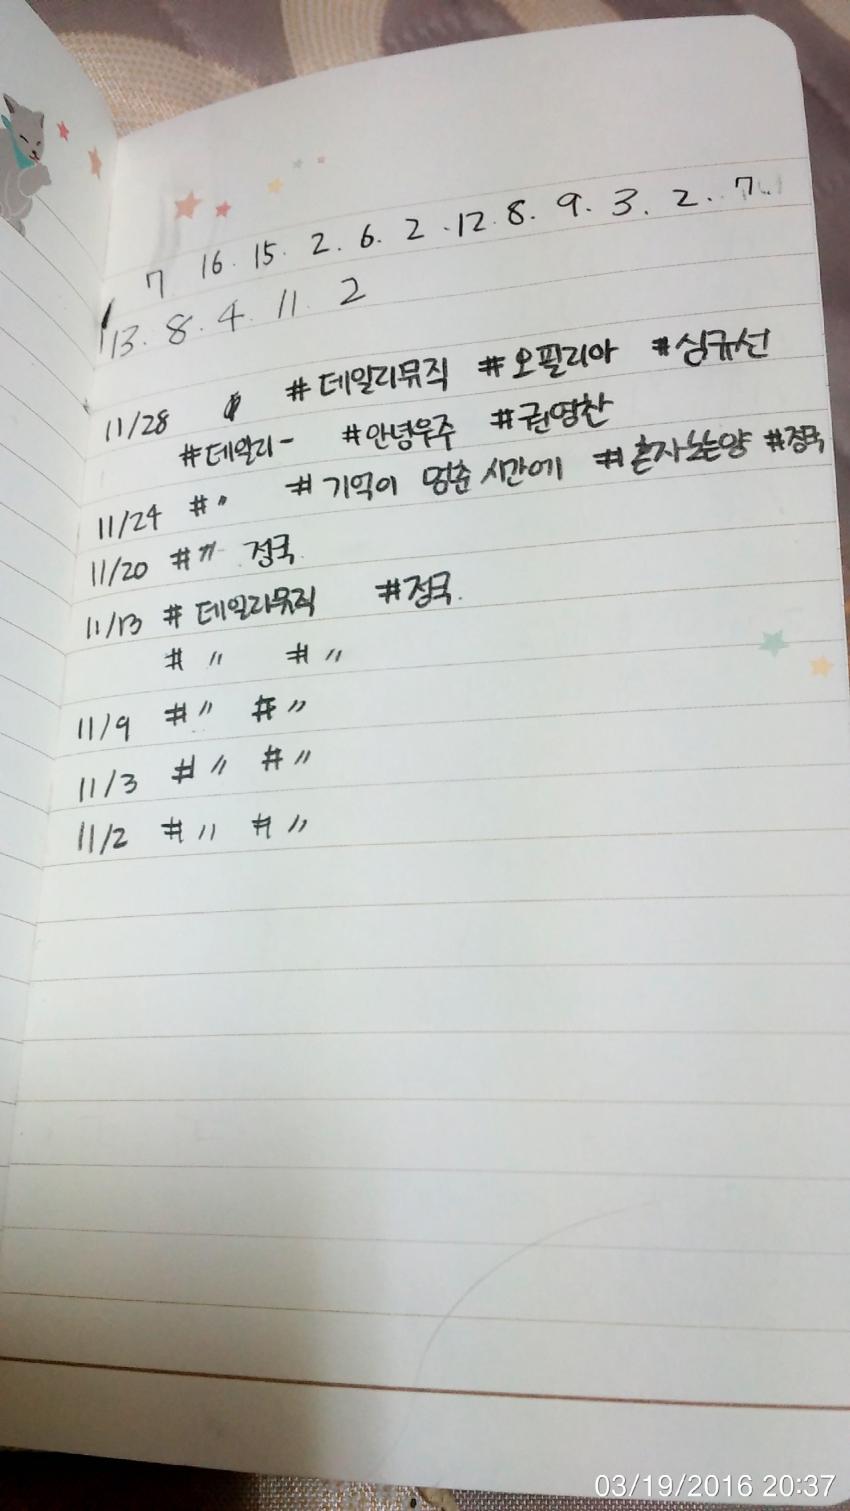 7 16. 15. 2. 6. 2. 12. 8. 9. 3. 2. 7.
13. 8. 4. 11. 2
11/28 #데일리뮤직 #오필리아 #심규선
#데일리- #안녕우주 #권영찬
11/24 #〃 #기억이 멈춘 시간에 #혼자노는양 #정국
11/20 #〃 정국
11/13 #데일리뮤직 #정국.
#〃 #〃
11/9 #〃 #〃
11/3 #〃 #〃
11/2 #〃 #〃
03/19/2016 20:37